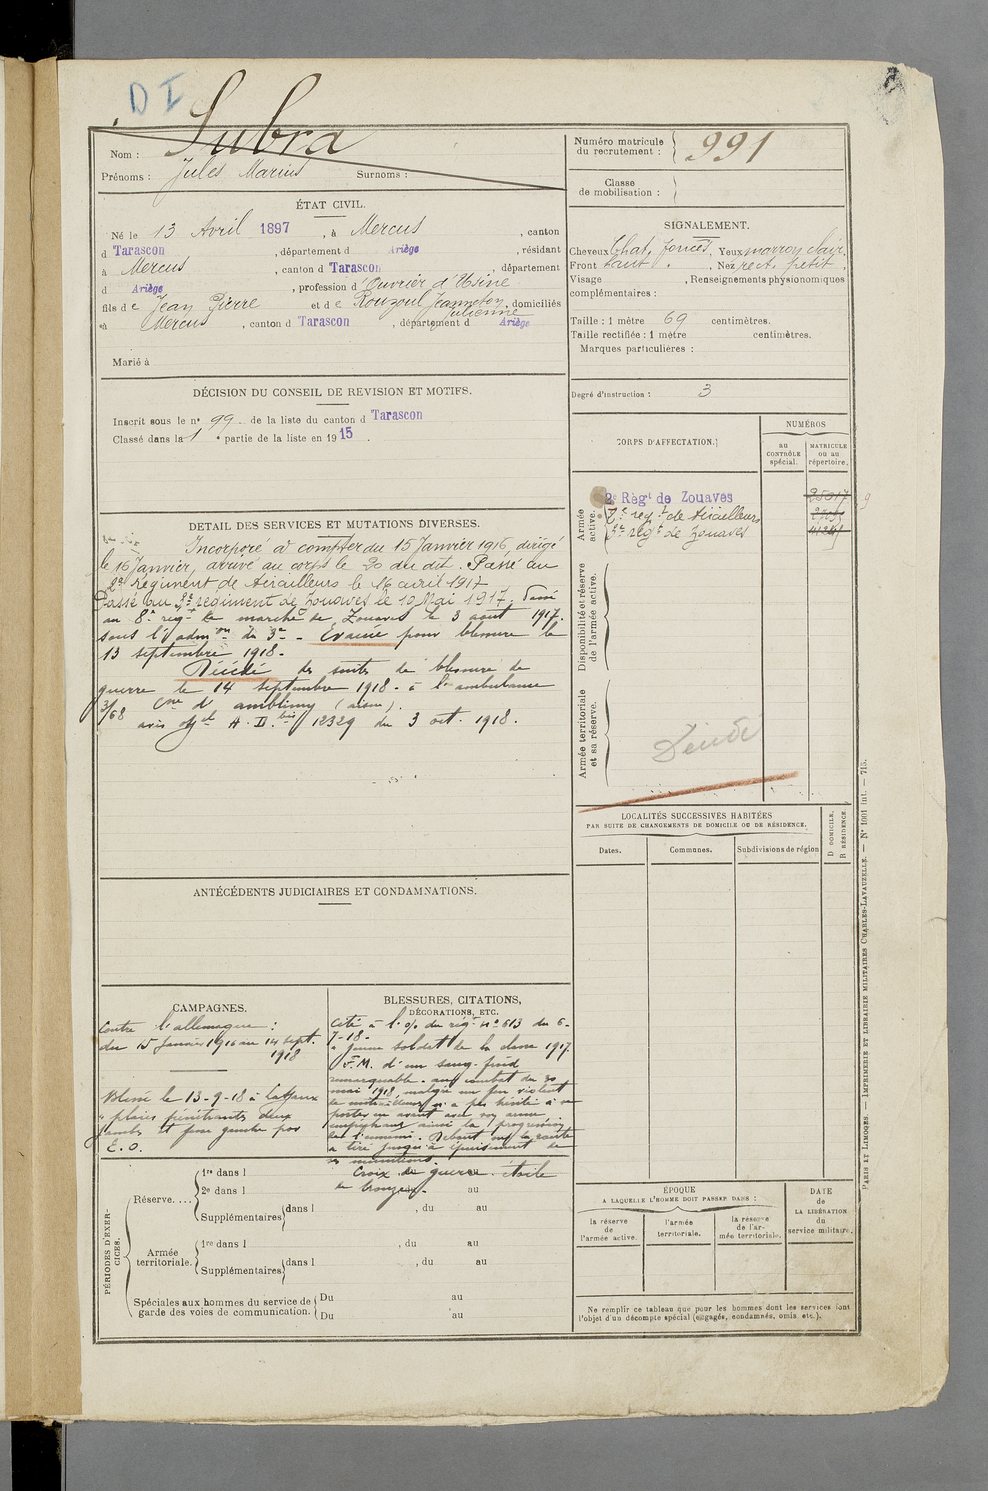 D I
Nom : Subra
Prénoms : Jules Marius Surnoms :
Numéro matricule du recrutement : 991
Classe de mobilisation :
ÉTAT CIVIL.
Né le 13 Avril 1897, à Mercus, canton
d Tarascon, département d Ariège, résidant
à Mercus, canton d Tarascon, département
d Ariège, profession d'Ouvrier d'Usine
fils de Jean Pierre et de Rouzoul Jeanneton, domiciliés
Julienne
à Mercus, canton d Tarascon, département d Ariège
Marié à
SIGNALEMENT.
Cheveux Chat. foncés, Yeux marron clair,
Front haut, Nez rect. petit,
Visage , Renseignements physionomiques
complémentaires :
Taille : 1 mètre 69 centimètres.
Taille rectifiée : 1 mètre centimètres.
Marques particulières :
Degré d'instruction : 3
DÉCISION DU CONSEIL DE REVISION ET MOTIFS.
Inscrit sous le n° 99 de la liste du canton d Tarascon
Classé dans la 1e partie de la liste en 1915.
DETAIL DES SERVICES ET MUTATIONS DIVERSES.
Incorporé à compter du 15 Janvier 1916, dirigé
le 16 Janvier, arrivé au corps le 20 du dit. Passé au
2e Régiment de tirailleurs le 16 avril 1917
Passé au 3e régiment de Zouaves le 10 Mai 1917. Passé
au 8e régt de marche de Zouaves le 3 août 1917.
sous l'admon du 3e - Evacué pour blessure le
13 septembre 1918.
Décédé des suites de blessure de
guerre le 14 septembre 1918 - à l'ambulance
3/68 Cne d'ambleny (aisne).
avis offel A.D.bis 12329 du 3 oct. 1918.
CORPS D'AFFECTATION.
NUMÉROS
au CONTRÔLE spécial.
MATRICULE ou au répertoire.
Armée active.
2e Régt de Zouaves
2e régt de tirailleurs
3e régt de Zouaves
Disponibilité et réserve de l'armée active.
Armée territoriale et sa réserve.
LOCALITÉS SUCCESSIVES HABITÉES
PAR SUITE DE CHANGEMENTS DE DOMICILE OU DE RÉSIDENCE.
Dates. Communes. Subdivisions de région D DOMICILE. R RÉSIDENCE.
ANTÉCÉDENTS JUDICIAIRES ET CONDAMNATIONS.
CAMPAGNES.
Contre l'allemagne :
du 15 Janvier 1916 au 14 sept.
1918
Blessé le 13-9-18 à Laffaux
"plaies pénétrantes deux
jambes et fesse gauche par
E.O.
BLESSURES, CITATIONS, DÉCORATIONS, ETC.
Cité à l'o/o du régt n° 613 du 6-
7-18-
"jeune soldat de la classe 1917
F.M. d'un sang-froid
remarquable - au combat du 30
mai 1918, malgré un feu violent
de mitrailleuses n'a pas hésité à se
porter en avant avec son arme
empêchant ainsi la progression
de l'ennemi. Debout sur la route
a tiré jusqu'à épuisement de
ses munitions.
Croix de guerre étoile
de bronze.
PÉRIODES D'EXERCICES.
Réserve....
1re dans l
2e dans l au
Supplémentaires dans l , du au
Armée territoriale.
1re dans l , du au
Supplémentaires dans l , du au
Spéciales aux hommes du service de garde des voies de communication.
Du au
Du au
ÉPOQUE
A LAQUELLE L'HOMME DOIT PASSER DANS :
la réserve de l'armée active.
l'armée territoriale.
la réserve de l'armée territoriale.
DATE de LA LIBÉRATION du service militaire.
Ne remplir ce tableau que pour les hommes dont les services font
l'objet d'un décompte spécial (engagés, condamnés, omis etc.).
PARIS ET LIMOGES. — IMPRIMERIE ET LIBRAIRIE MILITAIRES CHARLES-LAVAUZELLE. — N° 1001 int. — 715.